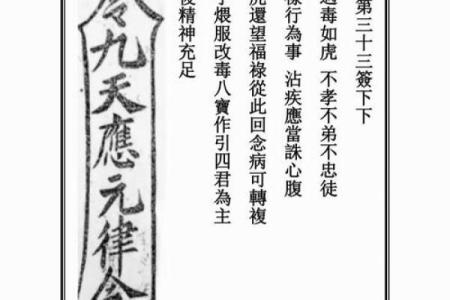 第三十三簽下下
毒如虎 不孝不弟不忠徒
樣行為事 沾疾應當誅心腹
還望福祿從此回念病可轉複
煨服改毒八寶作引四君為主
後精神充足
九天應元律令